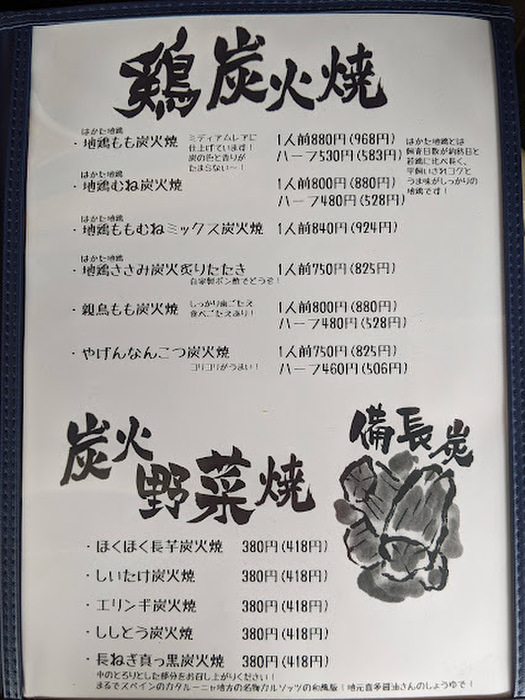 鶏炭火焼
はかた地鶏
・地鶏もも炭火焼
ミディアムレアに
仕上げています!
炭の色と香りが
たまらない〜!
1人前880円(968円)
ハーフ530円(583円)
はかた地鶏とは
飼育日数が約80日と
若鶏に比べ長く、
平飼いされコクと
うま味がしっかりの
地鶏です!
はかた地鶏
・地鶏むね炭火焼
1人前800円(880円)
ハーフ480円(528円)
はかた地鶏
・地鶏ももむねミックス炭火焼 1人前840円(924円)
はかた地鶏
・地鶏ささみ炭火炙りたたき 1人前750円(825円)
自家製ポン酢でどうぞ!
・親鳥もも炭火焼
しっかり歯ごたえ
食べごたえあり!
1人前800円(880円)
ハーフ480円(528円)
・やげんなんこつ炭火焼
コリコリがうまい!
1人前750円(825円)
ハーフ460円(506円)
炭火
野菜焼
備長炭
・ほくほく長芋炭火焼 380円(418円)
・しいたけ炭火焼 380円(418円)
・エリンギ炭火焼 380円(418円)
・ししとう炭火焼 380円(418円)
・長ねぎ真っ黒炭火焼 380円(418円)
中のとろりとした部分をお召し上がりください!
まるでスペインのカタルーニャ地方の名物カルソッツの和風版!地元喜多醤油さんのしょうゆで!